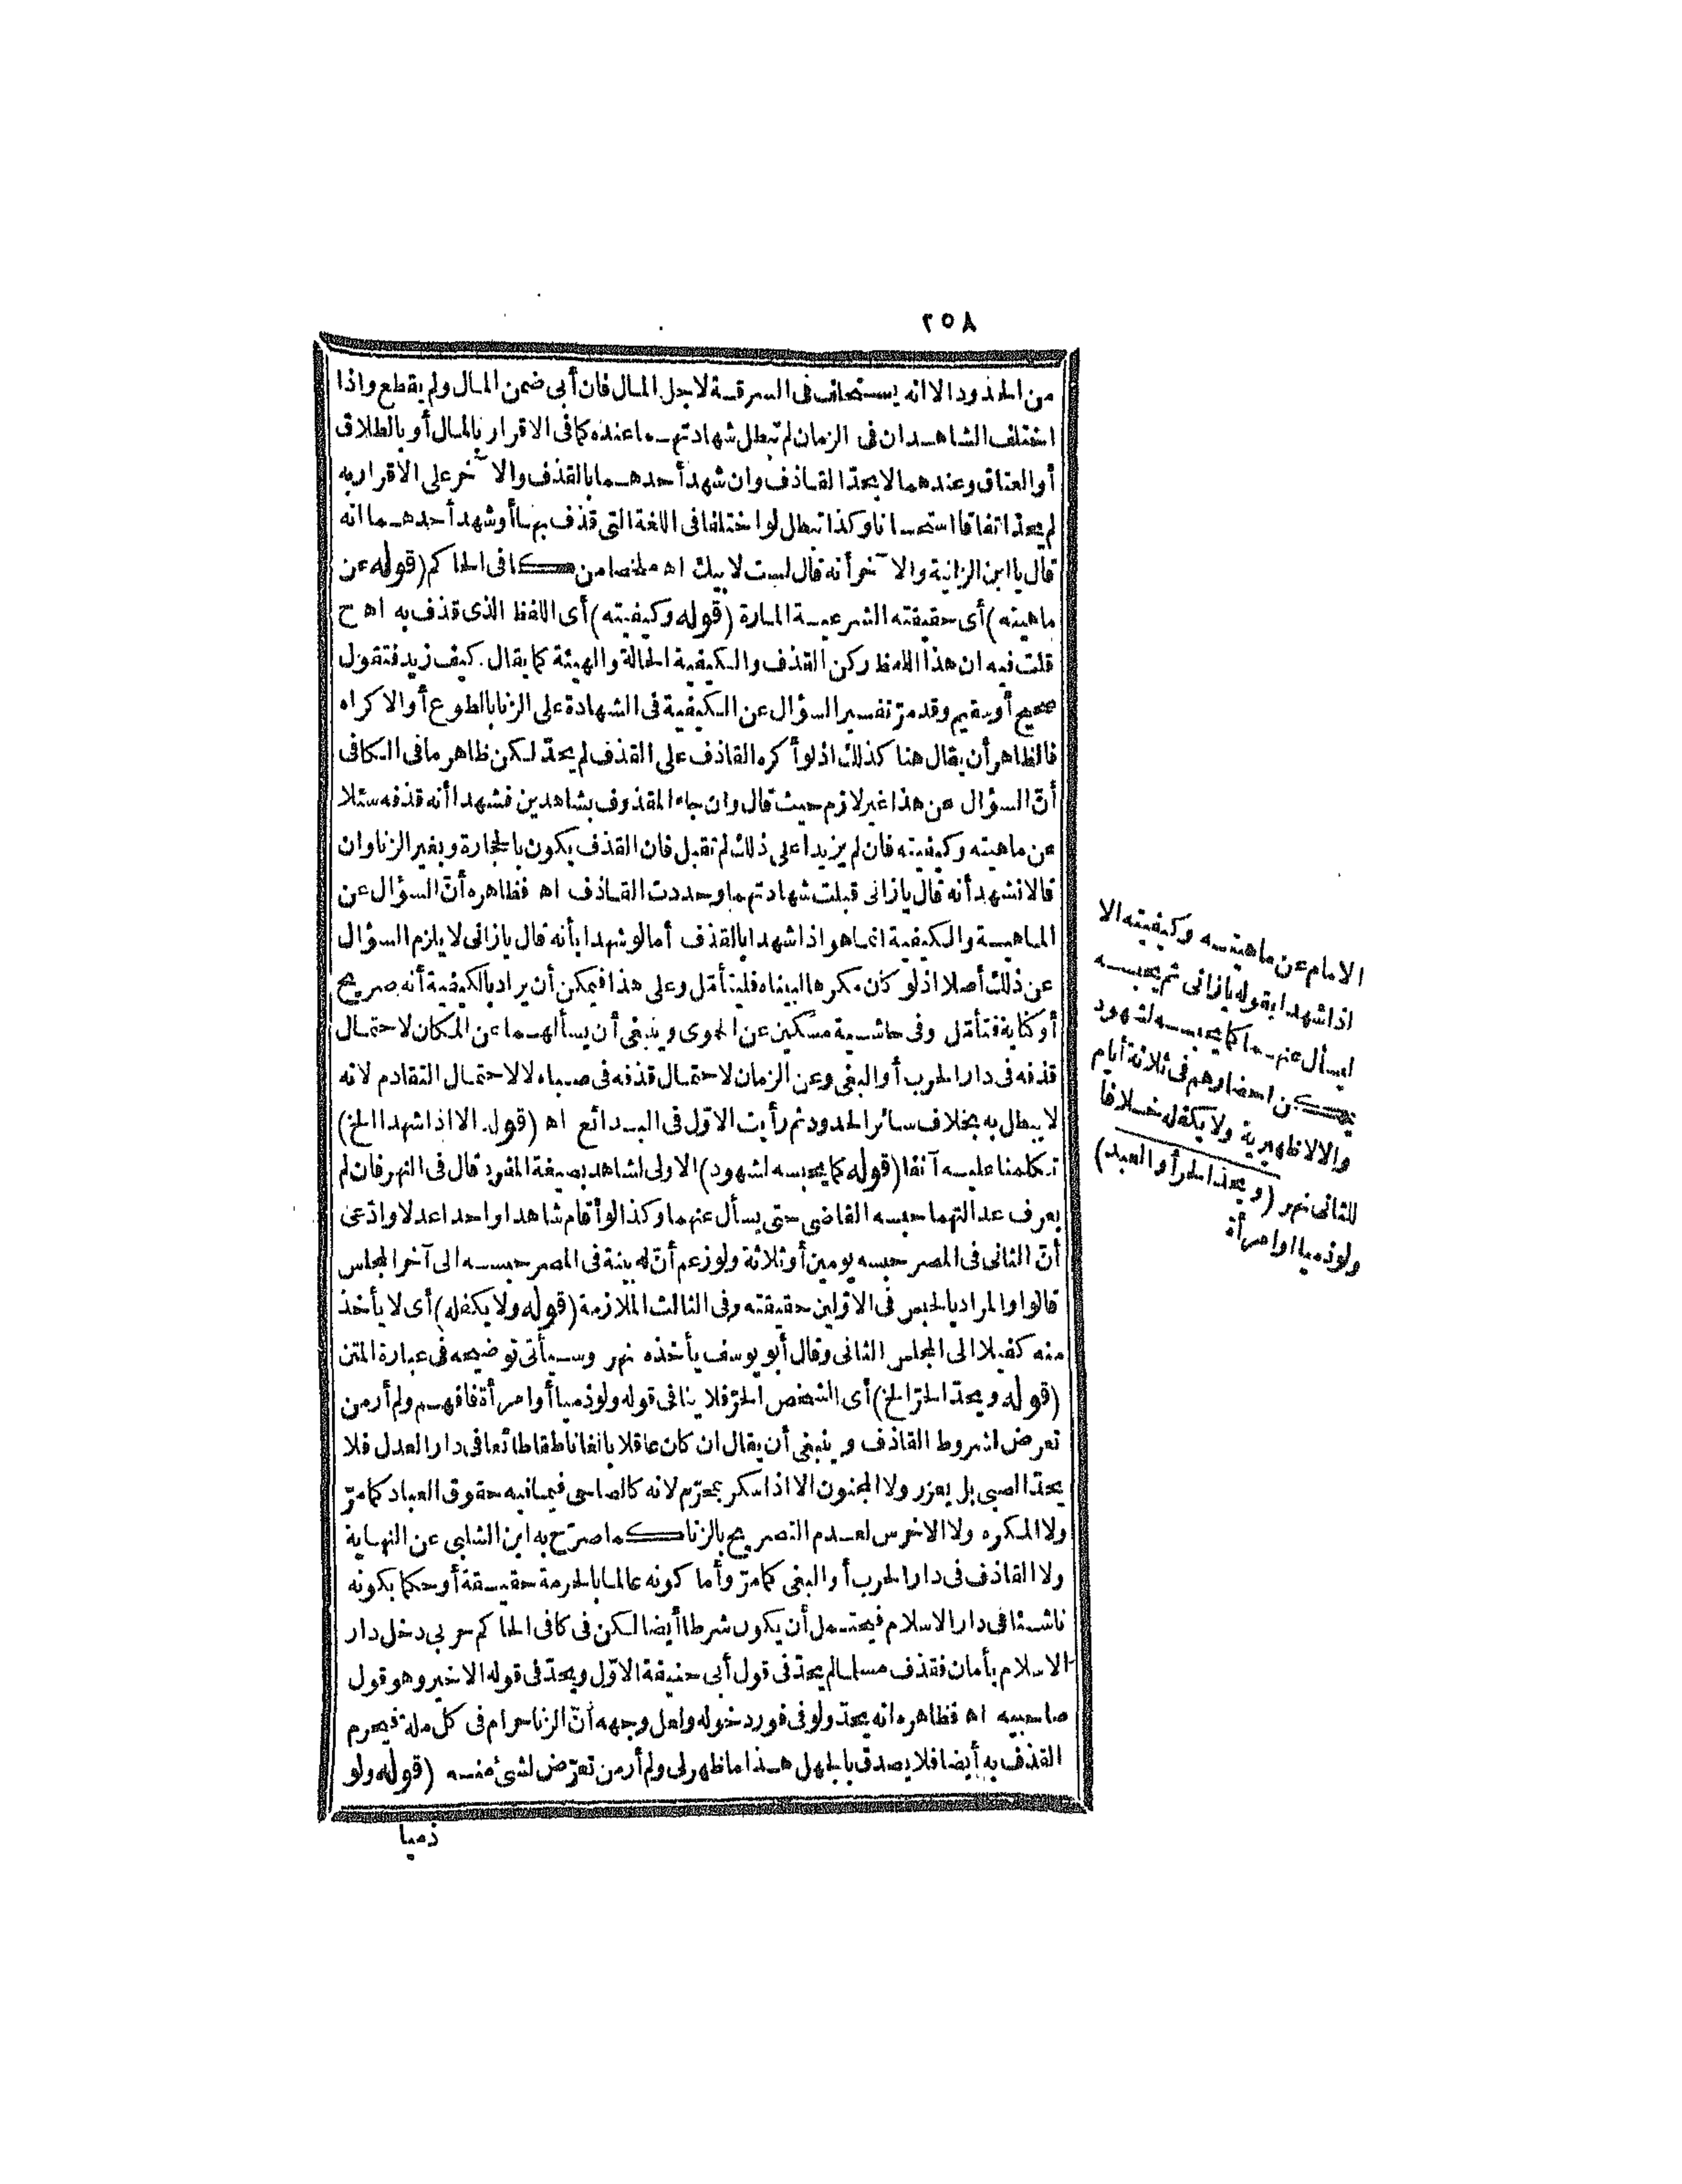 ٢٥٨
من الحدود الا انه يستحلف فى السرقة لاجل المال فان أبى ضمن المال ولم يقطع واذا
اختلف الشاهدان فى الزمان لم تبطل شهادتهما عنده كما فى الاقرار بالمال أو بالطلاق
أو العتاق وعندهما لا يحدّ القاذف وان شهد أحدهما بالقذف والآخر على الاقرار به
لم يحدّ اتفاقا استحسانا وكذا تبطل لو اختلفا فى اللغة التى قذف بها أو شهد أحدهما انه
قال يا ابن الزانية والآخر أنه قال لست لابيك اه ملخصا من كافى الحاكم (قوله عن
ماهيته) أى حقيقته الشرعية المارة (قوله وكيفيته) أى اللفظ الذى قذف به اه ح
قلت فيه ان هذا اللفظ ركن القذف والكيفية الحالة والهيئة كما يقال كيف زيد فتقول
صحيح أو سقيم وقد مرّ تفسير السؤال عن الكيفية فى الشهادة على الزنا بالطوع أو الاكراه
فالظاهر أن يقال هنا كذلك اذ لو أكره القاذف على القذف لم يحدّ لكن ظاهر ما فى الكافى
أنّ السؤال عن هذا غير لازم حيث قال وان جاء المقذوف بشاهدين فشهدا أنه قذفه سئلا
عن ماهيته وكيفيته فان لم يزيدا على ذلك لم تقبل فان القذف يكون بالحجارة وبغير الزنا وان
قالا نشهد أنه قال يا زانى قبلت شهادتهما وحددت القاذف اه فظاهره أنّ السؤال عن
الماهية والكيفية انما هو اذا شهدا بالقذف أما لو شهدا بأنه قال يا زانى لا يلزم السؤال
عن ذلك أصلا اذ لو كان مكرها لبيناه فليتأمّل وعلى هذا فيمكن أن يراد بالكيفية أنه صريح
أو كناية فتأمّل وفى حاشية مسكين عن الحموى وينبغى أن يسألهما عن المكان لاحتمال
قذفه فى دار الحرب أو البغى وعن الزمان لاحتمال قذفه فى صباه لا لاحتمال التقادم لانه
لا يبطل به بخلاف سائر الحدود ثم رأيت الاوّل فى البدائع اه (قوله الا اذا شهدا الخ)
تكلمنا عليه آنفا (قوله كما يحبسه لشهود) الاولى لشاهد بصيغة المفرد قال فى النهر فان لم
يعرف عدالتهما حبسه القاضى حتى يسأل عنهما وكذا لو أقام شاهدا واحدا عدلا وادّعى
أنّ الثانى فى المصر حبسه يومين أو ثلاثة ولو زعم أنّ له بينة فى المصر حبسه الى آخر المجلس
قالوا والمراد بالحبس فى الاوّلين حقيقته وفى الثالث الملازمة (قوله ولا يكفله) أى لا يأخذ
منه كفيلا الى المجلس الثانى وقال أبو يوسف يأخذه نهر وسيأتى توضيحه فى عبارة المتن
(قوله ويحدّ الحرّ الخ) أى الشخص الحرّ فلا ينافى قوله ولو ذميا أو امرأة فافهم ولم أر من
تعرض لشروط القاذف وينبغى أن يقال ان كان عاقلا بالغا ناطقا طائعا فى دار العدل فلا
يحدّ الصبى بل يعزر ولا المجنون الا اذا سكر بمحرّم لانه كالصاحى فيما فيه حقوق العباد كما مرّ
ولا المكره ولا الاخرس لعدم التصريح بالزنا كما صرّح به ابن الشلبى عن النهاية
ولا القاذف فى دار الحرب أو البغى كما مرّ وأما كونه عالما بالحرمة حقيقة أو حكما بكونه
ناشئا فى دار الاسلام فيحتمل أن يكون شرطا أيضا لكن فى كافى الحاكم حربى دخل دار
الاسلام بأمان فقذف مسلما لم يحدّ فى قول أبى حنيفة الاوّل ويحدّ فى قوله الاخير وهو قول
صاحبيه اه فظاهره انه يحدّ ولو فى فور دخوله ولعل وجهه أنّ الزنا حرام فى كلّ ملة فيحرم
القذف به أيضا فلا يصدق بالجهل هذا ما ظهر لى ولم أر من تعرّض لشئ منه (قوله ولو
ذميا
الامام عن ماهيته وكيفيته الا
اذا شهدا بقوله يا زانى ثم يحبسه
ليسأل عنهما كما يحبسه لشهود
يمكن احضارهم فى ثلاثة أيام
والا لا ظهيرية ولا يكفله خلافا
للثانى نهر (ويحدّ الحر أو العبد)
ولو ذميا او امرأة